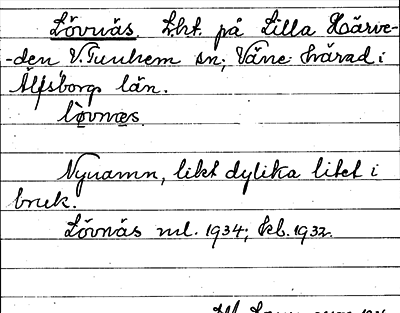 Lövnäs. Lht. på Lilla Härve-
-den V. Tunhem sn; Väne härad i
Älfsborgs län.
lövnæs.
Nynamn, likt dylika litet i
bruk.
Lövnäs ml. 1934; kb. 1932.